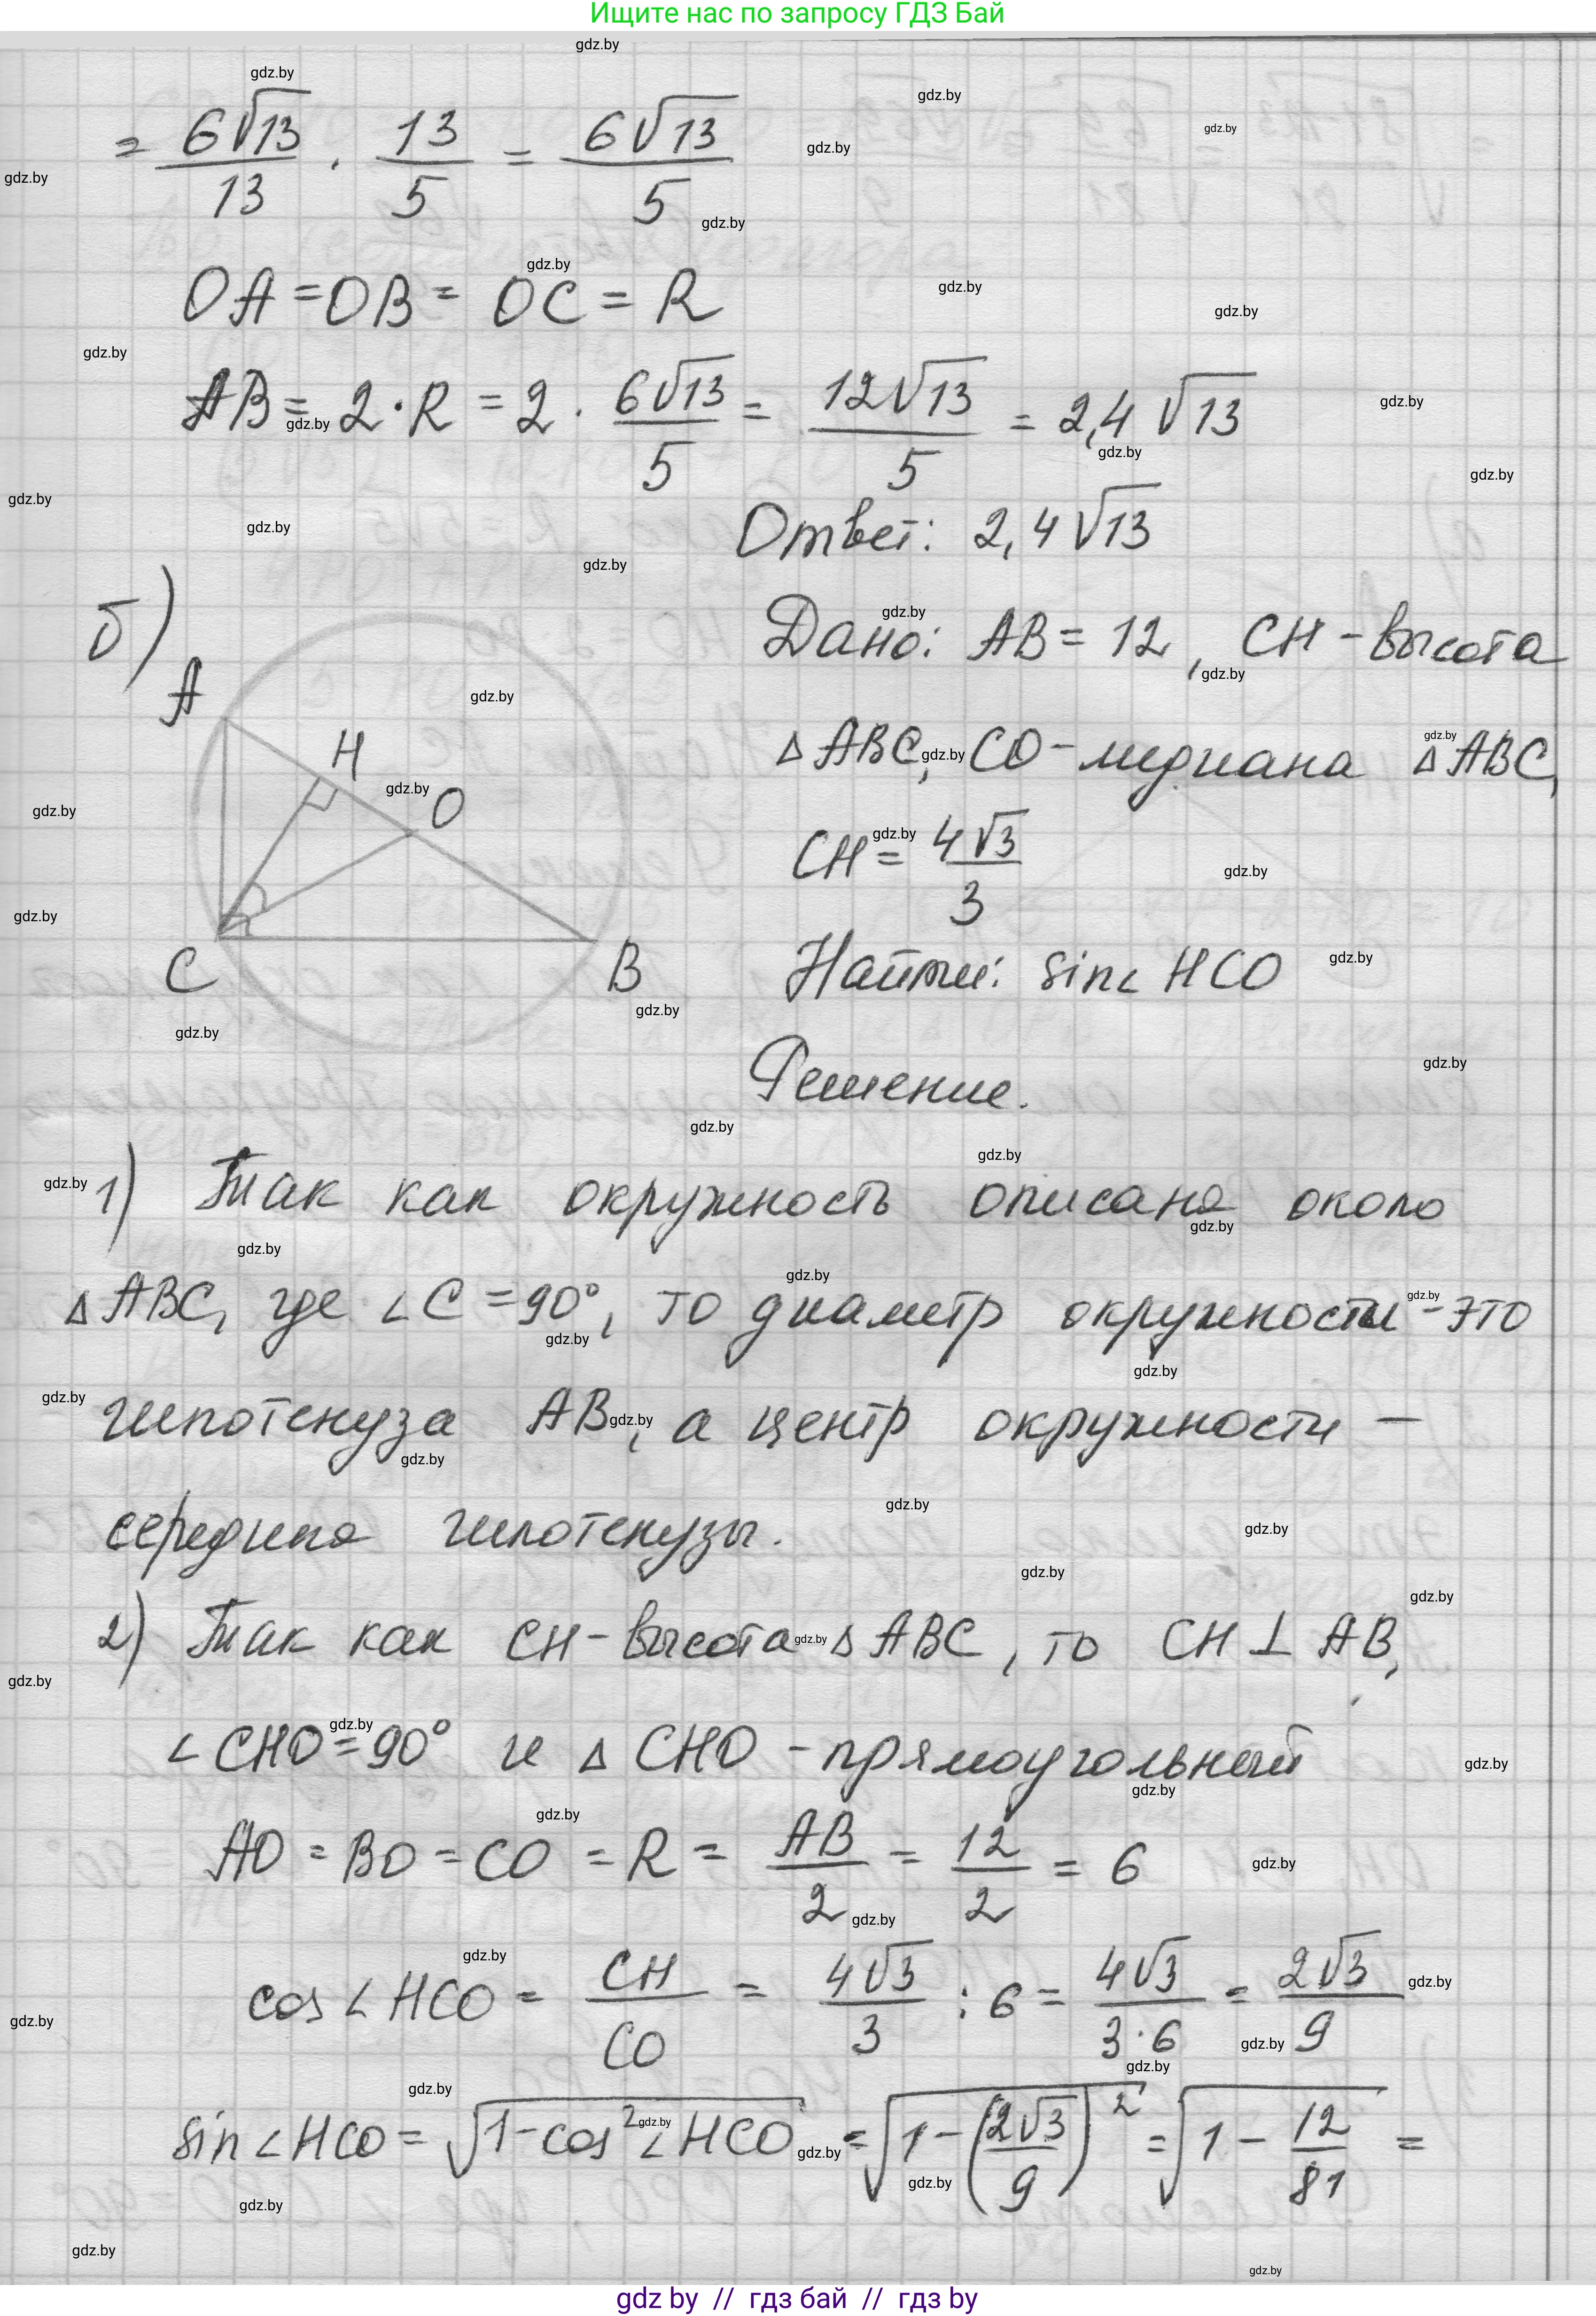 Ищите нас по запросу ГДЗ Бай
= 6√13/13 · 13/5 = 6√13/5
OA = OB = OC = R
AB = 2·R = 2 · 6√13/5 = 12√13/5 = 2,4 √13
Ответ: 2,4 √13
б)
A
H
O
C
B
Дано: AB = 12, CH - высота
△ABC, CO - медиана △ABC,
CH = 4√3/3
Найти: sin∠HCO
Решение.
1) Так как окружность описана около
△ABC, где ∠C = 90°, то диаметр окружности - это
гипотенуза AB, а центр окружности –
середина гипотенузы.
2) Так как CH - высота △ABC, то CH ⊥ AB,
∠CHO = 90° и △CHO - прямоугольный
AO = BO = CO = R = AB/2 = 12/2 = 6
cos∠HCO = CH/CO = 4√3/3 : 6 = 4√3/3·6 = 2√3/9
sin∠HCO = √(1-cos²∠HCO) = √(1-(2√3/9)²) = √(1 - 12/81) =
gdz by // гдз бай // гдз by
gdz.by